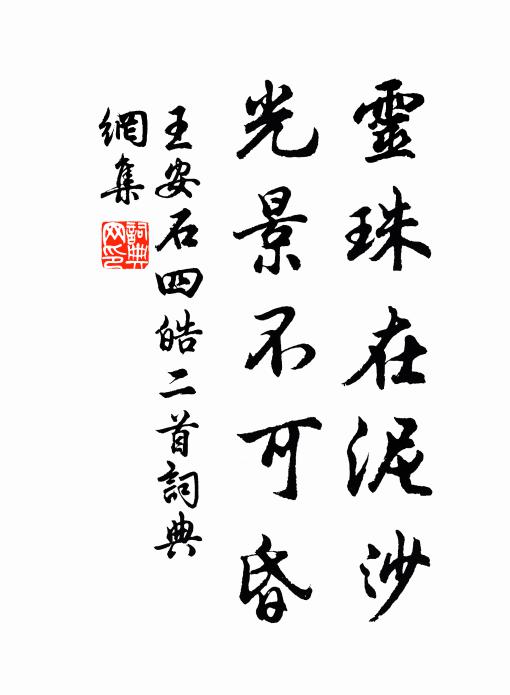 靈珠在泥沙
光景不可昏
王安石四皓二首詞典
網集
詞典
网印